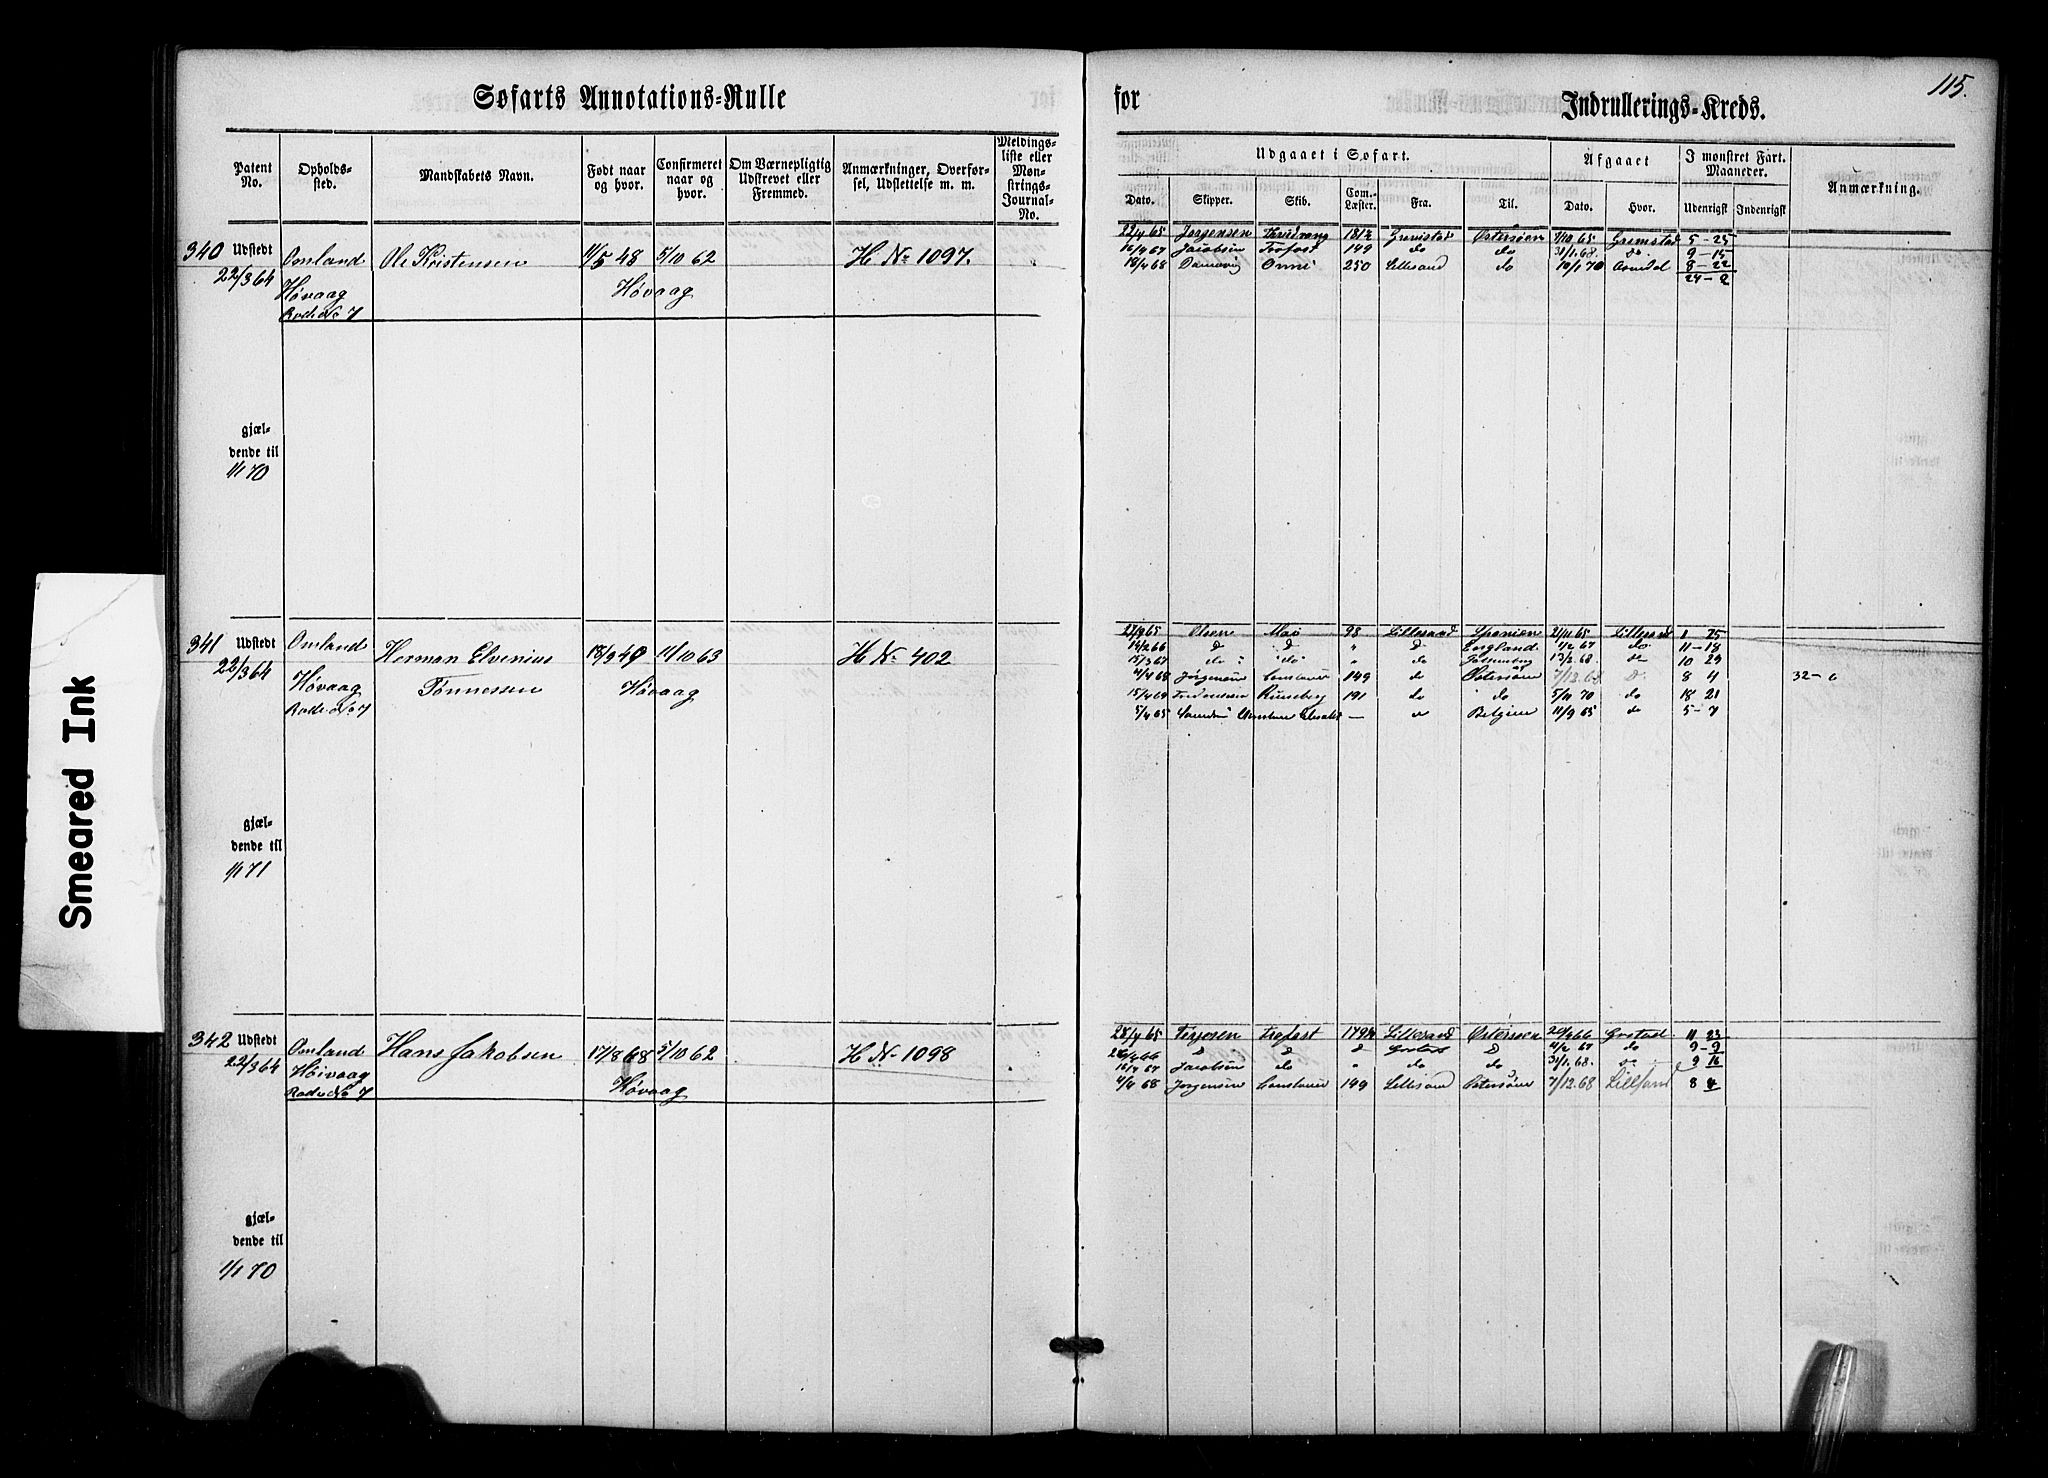 Smeared Ink
Søfarts Annotations-Rulle
Patent No. Opholds-sted. Mandskabets Navn. Født naar og hvor. Confirmeret naar og hvor. Om Værnepligtig Udskrevet eller Fremmed. Anmærkninger, Overførsel, Udslettelse m. m. Meldingsliste eller Mønstrings-Journal-No.
340 Udstedt Omland Ole Kristensen 11/5 48 5/10 62 H No 1097.
22/3 64 Høvaag Høvaag
Rode No 7
gjæl-
dende til
1/1 70
341 Udstedt Omland Herman Elvenius 18/9 49 11/10 63 H No 402
22/3 64 Høvaag Tønnessen Høvaag
Rode No 7
gjæl-
dende til
1/1 71
342 Udstedt Omland Hans Jakobsen 17/8 68 5/10 62 H No 1098
22/3 64 Høivaag Høvaag
Rode No 7
gjæl-
dende til
1/1 70
115.
for Indrullerings-Kreds.
Udgaaet i Søfart. Afgaaet I mønstret Fart. Maaneder. Anmærkning.
Dato. Skipper. Skib. Com. Læster. Fra. Til. Dato. Hvor. Udenrigst Indenrigst
22/4 65 Jørgensen 181½ Grimstad Østersøen 7/10 65 Grimstad 5-25
16/4 67 Jacobsen 149 do do 31/1 68. do 9-15
18/4 68 250 Lillesand do 10/1 70 Arendal 8-22
24-2
27/9 65 Olsen 98 Lillesand Spanien 21/11 65 Lillesand 1 25
14/2 66 D D " D England 1/2 67 do 11-18
15/3 67 do do " do 13/2 68. do 10 29
4/4 68 Jørgensen 149 do Østersøen 7/12 68 D. 8 4 32-6
15/4 69 Runeberg 191 do do 5/11 70 do 18 21
5/4 65 — Belgien 11/9 65 do 5-7
28/4 65 Terjesen 179½ Lillesand Østersøen 66 11 23
66 D D D D 4/2 67 do 9-9
16/4 67 Jacobsen do " do do 31/1 68. do 9 16
4/4 68 Jørgensen 149 Lillesand Østersøen 7/12 68 Lillesand 8 4